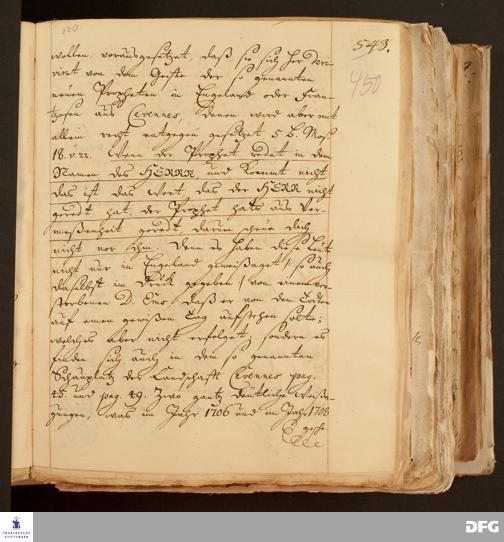 220
543.
450
wollen, vorausgesetzet, daß sie sich her deri-
viret von dem Geiste der so genannten
neuen Propheten in Engeland oder Fran-
tzosen aus Cevennes, denen wird aber mit
allem recht entgegen gesetzet 5 B. Mos:
18. v. 22. Wenn der Prophet redet in dem
Namen des HERRN, und kommt nicht,
das ist das Wort das der HERR nicht
geredt hat, der Prophet hats aus Ver-
meßenheit geredt, darum scheue dich
nicht vor Ihm. Denn es haben diese Leute
nicht nur in Engeland geweißaget / so auch
daselbst im Druck gegeben / von einem ver-
storbenen D. Ems daß er von den Todten
auf einen gewißen Tag aufstehen solte;
welches aber nicht erfolget; sondern es
finden sich auch in dem so genannten
Schauplatz der Landschafft Cevennes pag.
45. und pag. 49. zwo gantz deutliche Weißa-
gungen, was im Jahr 1706 und im Jahr 1708
gesche
FRANCKESCHE
STIFTUNGEN
DFG